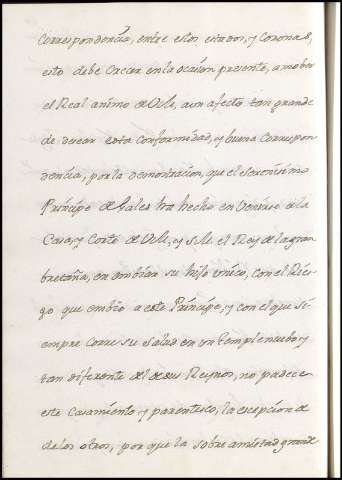 correspondencia, entre estos estados, y Coronas,
esto debe crecer en la ocasion presente, a mober
el Real animo de VMd, aun afecto tan grande
de desear esta conformidad, y buena Correspon
dencia, por la demonstracion, que el serenisimo
Principe de Gales ha hecho en venirse de la
Casa, y Corte de VMd, y SM. el Rey de la gran
bretaña, en embiar su hijo unico, con el Ries-
go que embio a este Principe, y con el que si-
empre corre su Salud en un temple nuebo y
tan diferente del de sus Reynos, no padece
este Casamiento y parentesco, la excepcion de
de los otros, por que la sobre amistad grande